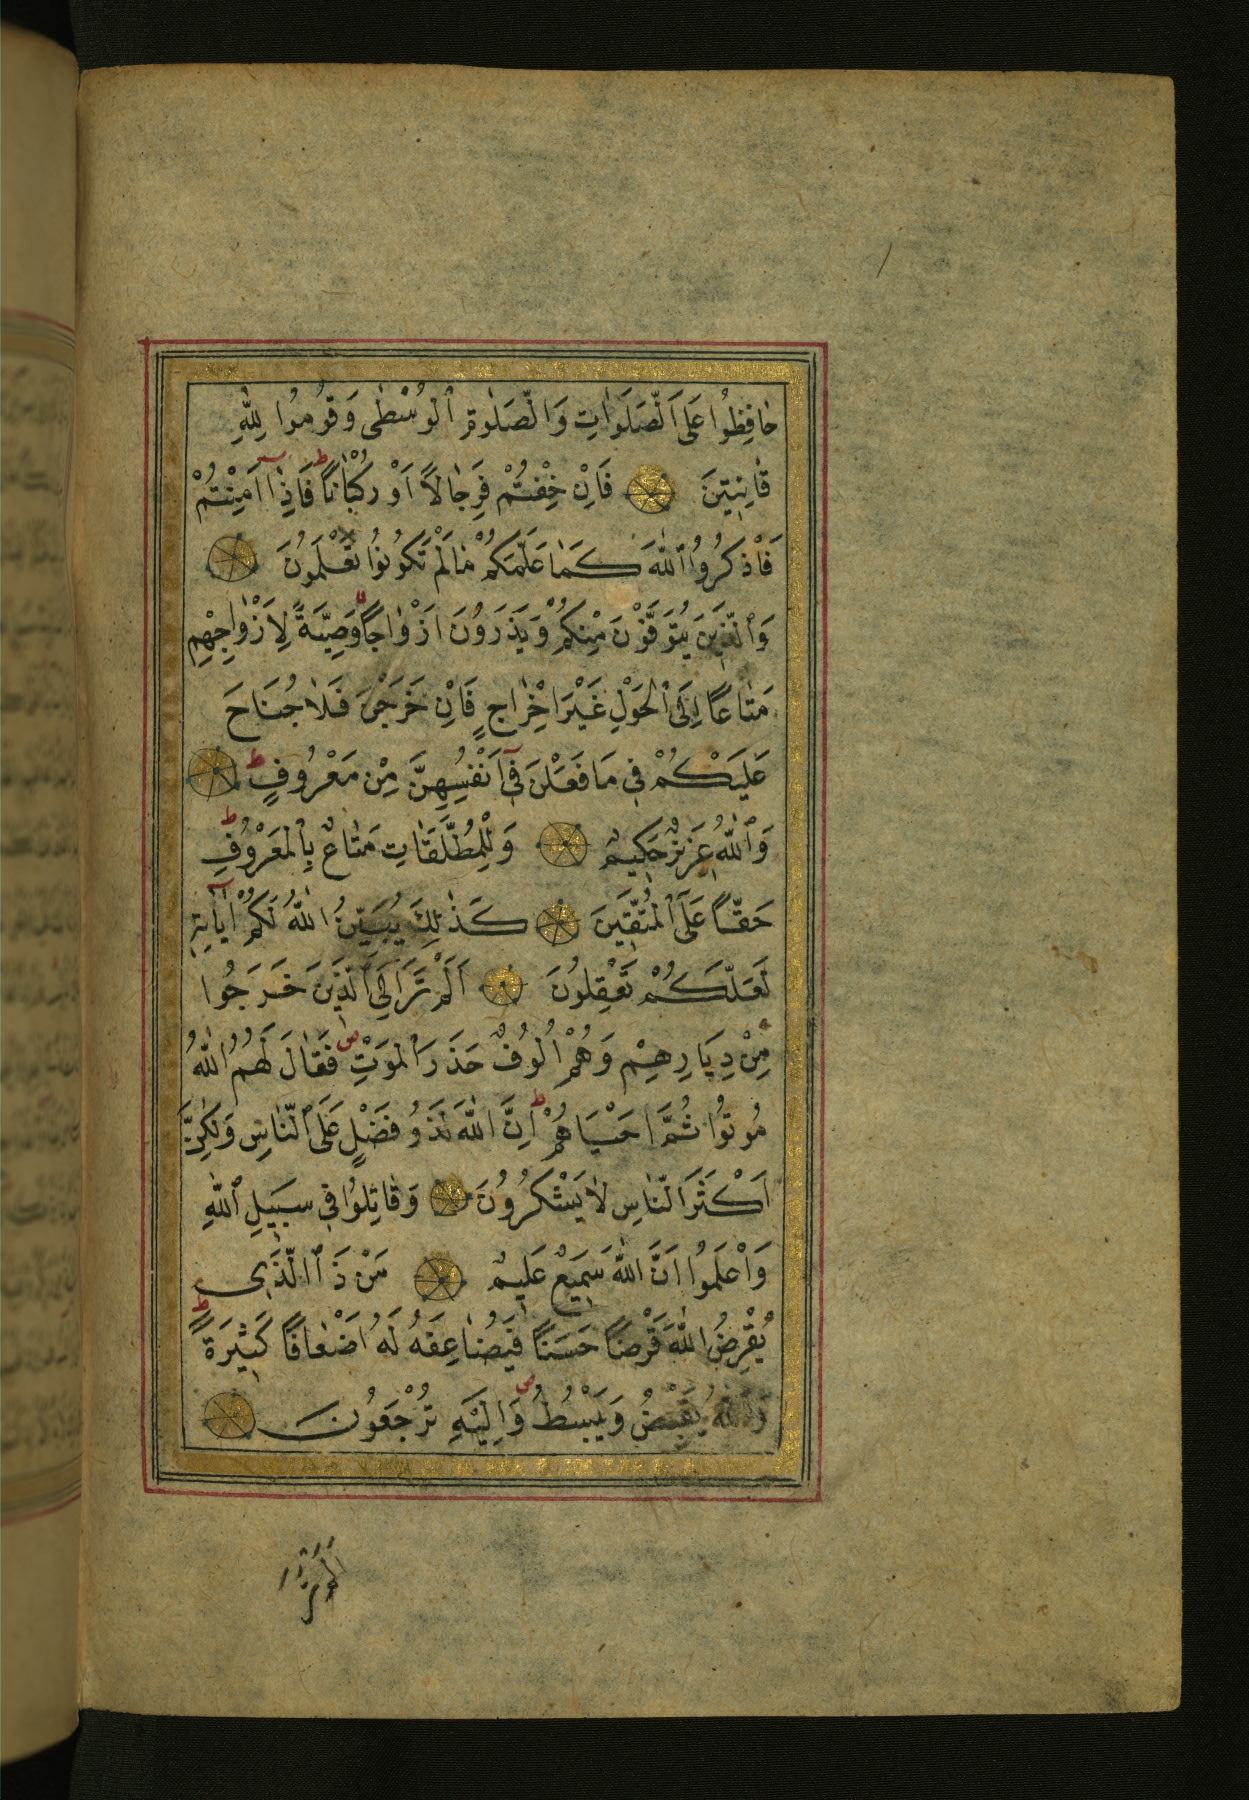 حَافِظُوا عَلَى الصَّلَوَاتِ وَالصَّلٰوةِ الْوُسْطٰى وَقُومُوا لِلّٰهِ
قَانِتِينَ فَاِنْ خِفْتُمْ فَرِجَالًا اَوْ رُكْبَانًا ط فَاِذَا اَمِنْتُمْ
فَاذْكُرُوا اللّٰهَ كَمَا عَلَّمَكُمْ مَالَمْ تَكُونُوا تَعْلَمُونَ
وَالَّذِينَ يُتَوَفَّوْنَ مِنْكُمْ وَيَذَرُونَ اَزْوَاجًا وَصِيَّةً لِاَزْوَاجِهِمْ
مَتَاعًا اِلَى الْحَوْلِ غَيْرَ اِخْرَاجٍ فَاِنْ خَرَجْنَ فَلَا جُنَاحَ
عَلَيْكُمْ فِي مَا فَعَلْنَ فِي اَنْفُسِهِنَّ مِنْ مَعْرُوفٍ ط
وَاللّٰهُ عَزِيزٌ حَكِيمٌ وَلِلْمُطَلَّقَاتِ مَتَاعٌ بِالْمَعْرُوفِ ط
حَقًّا عَلَى الْمُتَّقِينَ كَذٰلِكَ يُبَيِّنُ اللّٰهُ لَكُمْ اٰيَاتِهِ
لَعَلَّكُمْ تَعْقِلُونَ اَلَمْ تَرَ اِلَى الَّذِينَ خَرَجُوا
مِنْ دِيَارِهِمْ وَهُمْ اُلُوفٌ حَذَرَ الْمَوْتِ ص فَقَالَ لَهُمُ اللّٰهُ
مُوتُوا ثُمَّ اَحْيَاهُمْ ط اِنَّ اللّٰهَ لَذُو فَضْلٍ عَلَى النَّاسِ وَلٰكِنَّ
اَكْثَرَ النَّاسِ لَا يَشْكُرُونَ وَقَاتِلُوا فِي سَبِيلِ اللّٰهِ
وَاعْلَمُوا اَنَّ اللّٰهَ سَمِيعٌ عَلِيمٌ مَنْ ذَا الَّذِي
يُقْرِضُ اللّٰهَ قَرْضًا حَسَنًا فَيُضَاعِفَهُ لَهُ اَضْعَافًا كَثِيرَةً ط
وَاللّٰهُ يَقْبِضُ وَيَبْسُطُ ص وَاِلَيْهِ تُرْجَعُونَ
اَلَمْ تَرَ